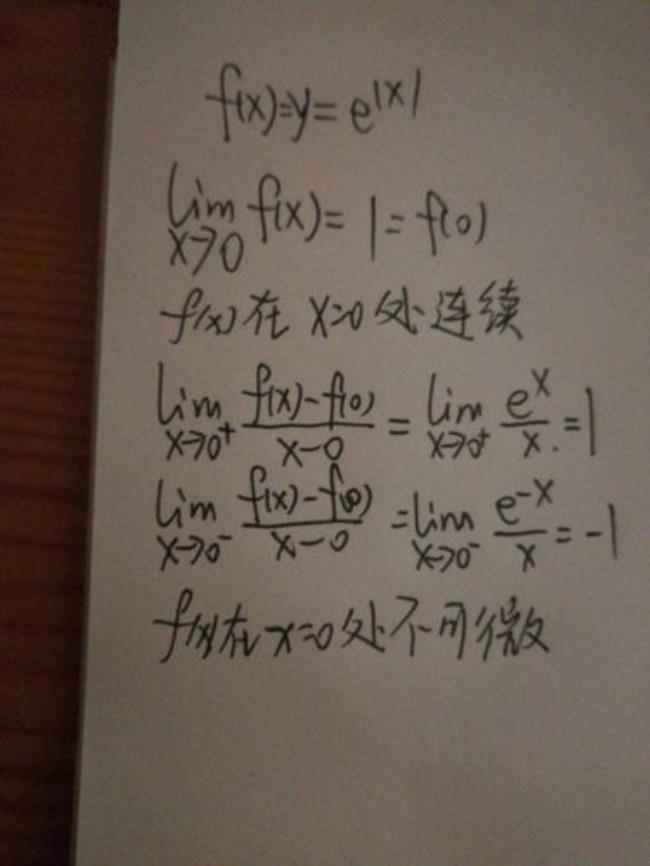 f(x)=y=e^|x|
lim x→0 f(x)=1=f(0)
f(x)在x=0处连续
lim x→0⁺ (f(x)-f(0))/(x-0) = lim x→0⁺ e^x/x = 1
lim x→0⁻ (f(x)-f(0))/(x-0) = lim x→0⁻ e^-x/x = -1
f(x)在x=0处不可微